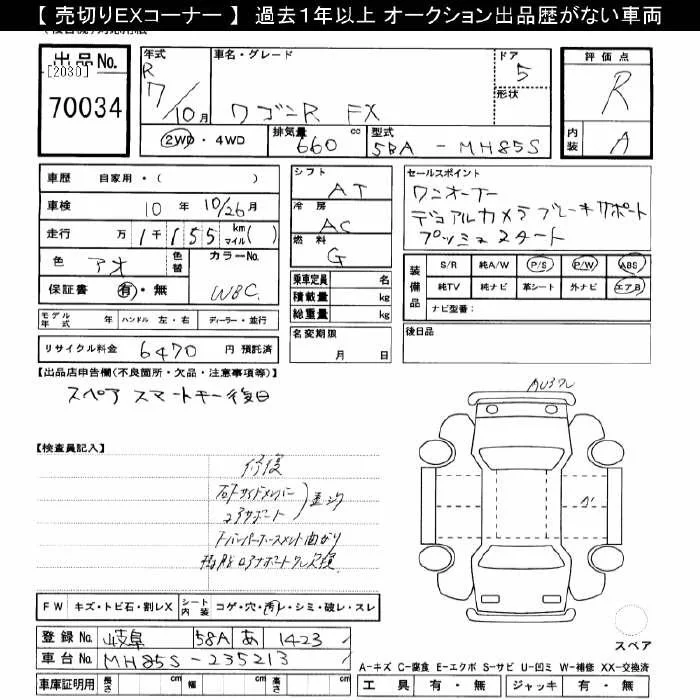 【 売切りEXコーナー 】 過去1年以上 オークション出品歴がない車両
出品 No.
[2030]
70034
年式 車名・グレード ドア
R 7/10月 ワゴンR FX 5
形状
2WD・4WD 排気量 660 cc 型式 5BA - MH85S
評価点
R
内装 A
車歴 自家用・( )
車検 10 年 10/26月
走行 万 1千155 km マイル( )
色 アオ 色替 カラーNo. WBC
保証書 有・無
モデル年式 年 ハンドル 左・右 ディーラー・並行
リサイクル料金 6470 円 預託済
シフト AT
冷房 AC
燃料 G
乗車定員 名
積載量 kg
総重量 kg
名変期限
月 日
セールスポイント
ワンオーナー
デュアルカメラブレーキサポート
プッシュスタート
装備品 S/R 純A/W P/S P/W ABS
純TV 純ナビ 革シート 外ナビ エアB
ナビ型番：
後日品
【出品店申告欄(不良箇所・欠品・注意事項等)】
スペア スマートキー後日
【検査員記入】
修復
右Fサイドメンバー
コアサポート
F バンパーホースメント曲がり
A1
FW キズ・トビ石・割レX シート内装 コゲ・穴・汚レ・シミ・破レ・スレ
登録 No. 岐阜 58A あ 1423
車台 No. MH85S-235213
車庫証明用 長さ cm 幅 cm 高さ cm
スペア
A-キズ C-腐食 E-エクボ S-サビ U-凹ミ W-補修 XX-交換済
工具 有・無 ジャッキ 有・無